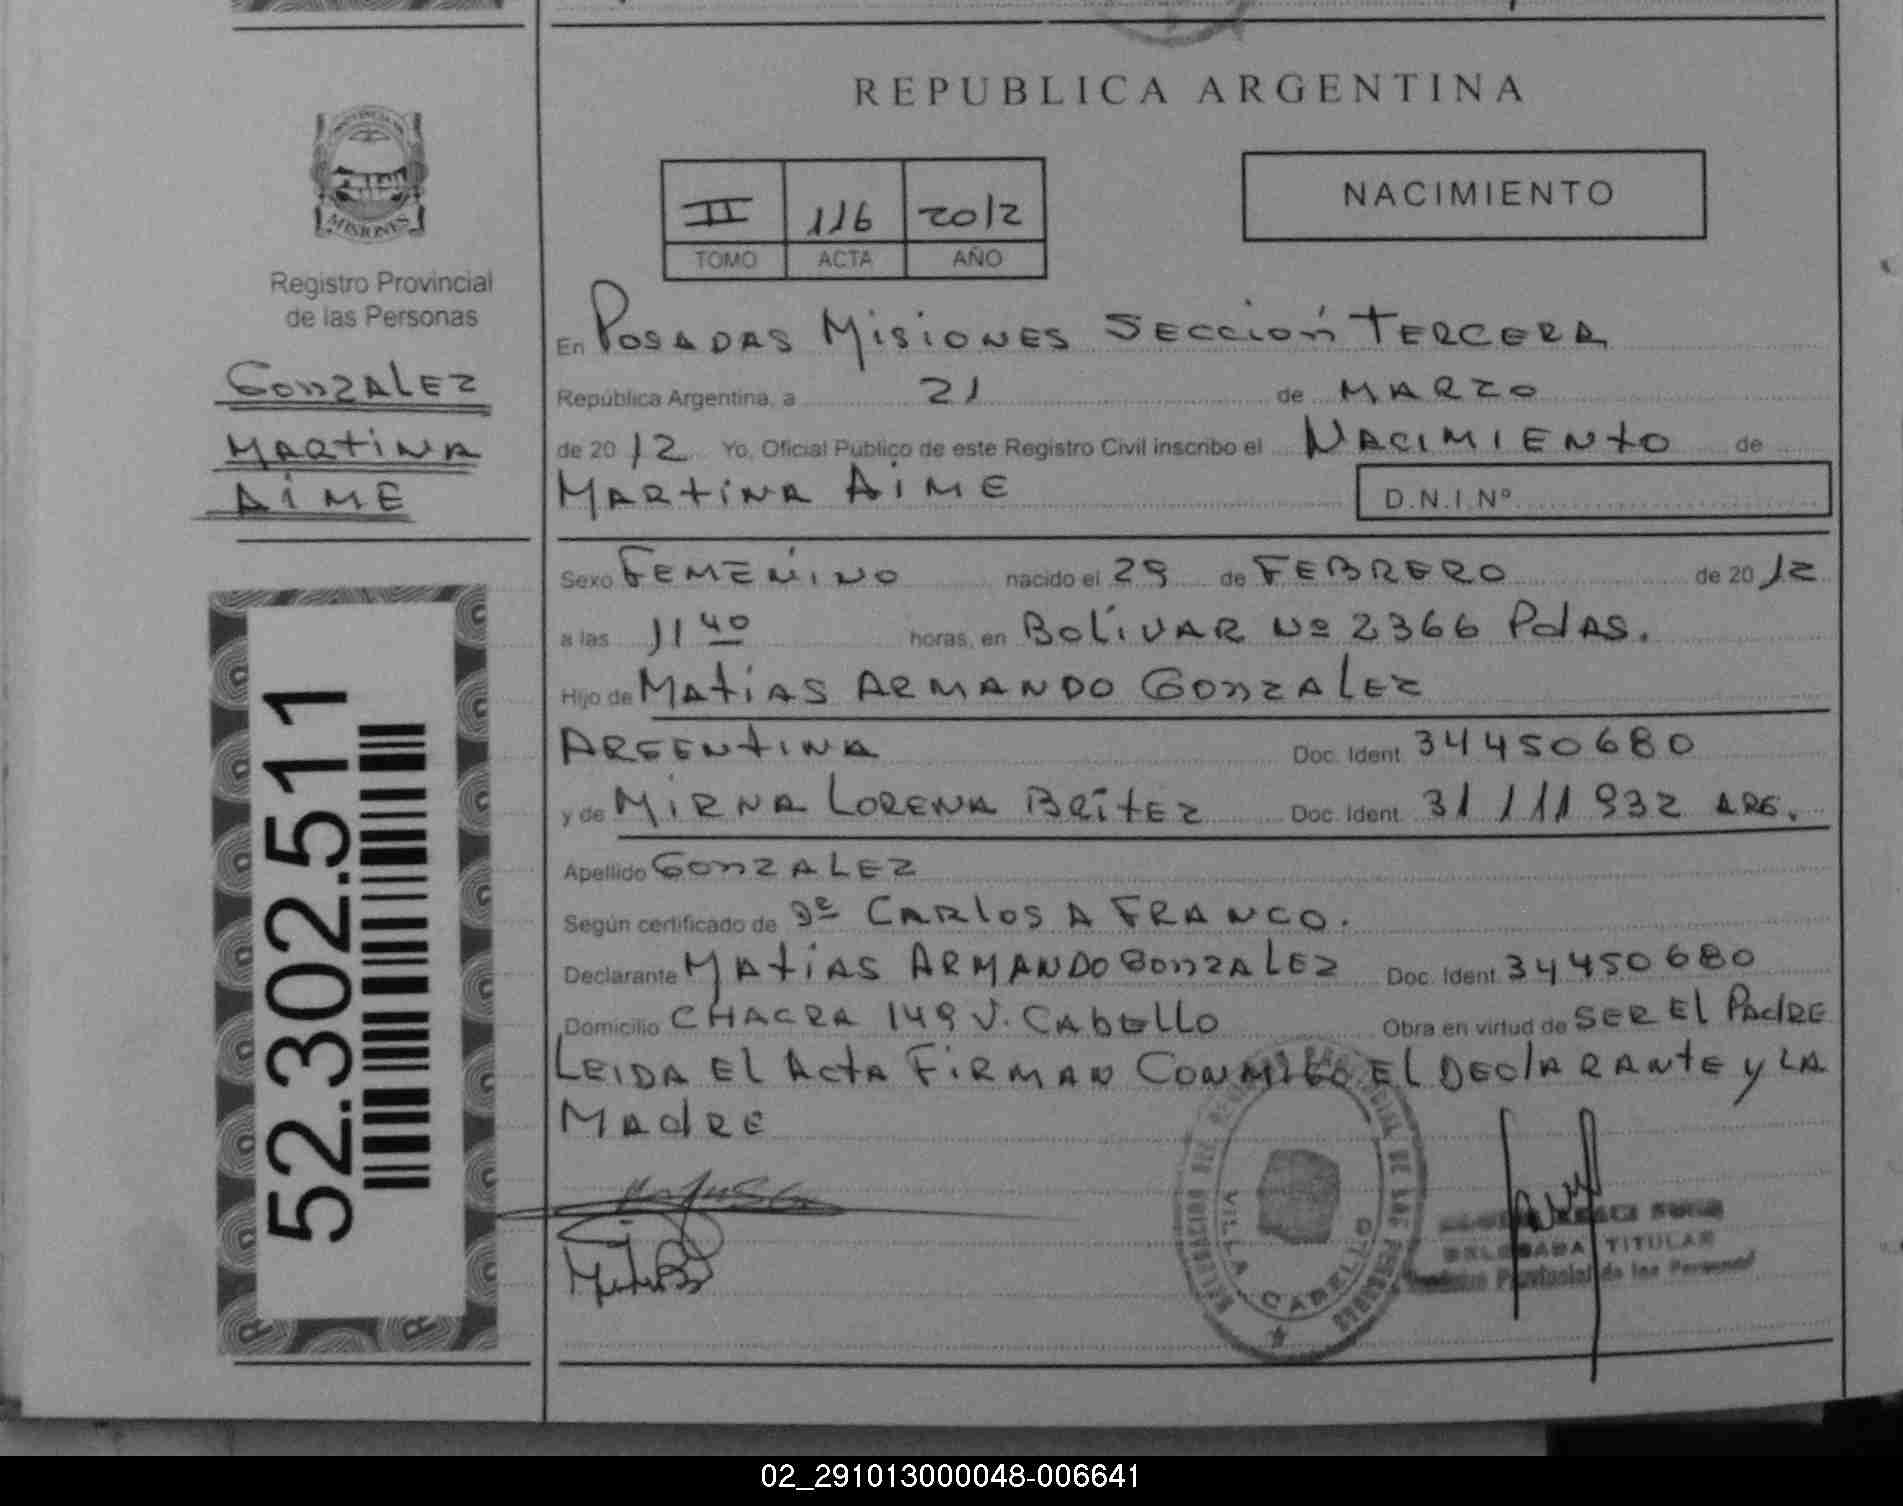 REPUBLICA ARGENTINA
PROVINCIA DE
MISIONES
Registro Provincial
de las Personas
GONZALEZ
MARTINA
AIME
52.302.511
II 116 2012
TOMO ACTA AÑO
NACIMIENTO
En POSADAS MISIONES SECCIÓN TERCERA
República Argentina, a 21 de MARZO
de 2012 Yo, Oficial Público de este Registro Civil inscribo el NACIMIENTO de
MARTINA AIME D.N.I.Nº
Sexo FEMENINO nacido el 29 de FEBRERO de 2012
a las 11 40 horas, en BOLÍVAR Nº 2366 PdAS.
Hijo de MATÍAS ARMANDO GONZALEZ
ARGENTINA Doc. Ident. 34450680
y de MIRNA LORENA BRÍTEZ Doc. Ident. 31111932 ARG.
Apellido GONZALEZ
Según certificado de CARLOS A FRANCO.
Declarante MATÍAS ARMANDO GONZALEZ Doc. Ident. 34450680
Domicilio CHACRA 149 V. CABELLO Obra en virtud de SER EL PADRE
LEIDA EL ACTA FIRMAN CONMIGO EL DECLARANTE y LA
MADRE
DELEGACION DEL REGISTRO PROVINCIAL DE LAS PERSONAS
VILLA CABELLO
DELEGADA TITULAR
Registro Provincial de las Personas
02_291013000048-006641